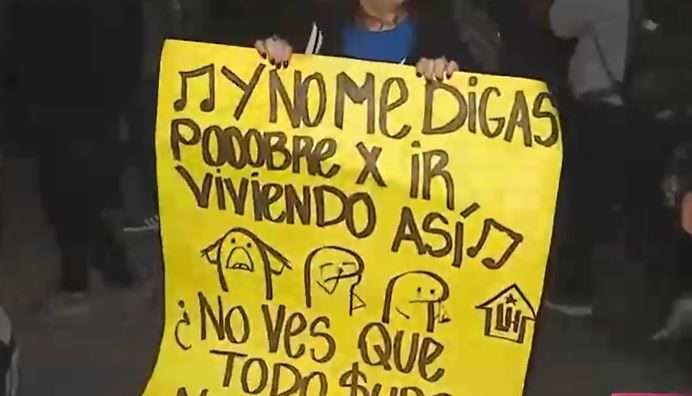 ♫ Y NO ME DIGAS
POOOBRE X IR
VIVIENDO ASÍ ♫
¿NO VES QUE
TODO